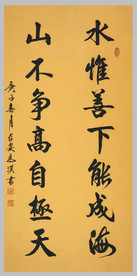 水惟善下能成海
山不争高自極天
庚子春月